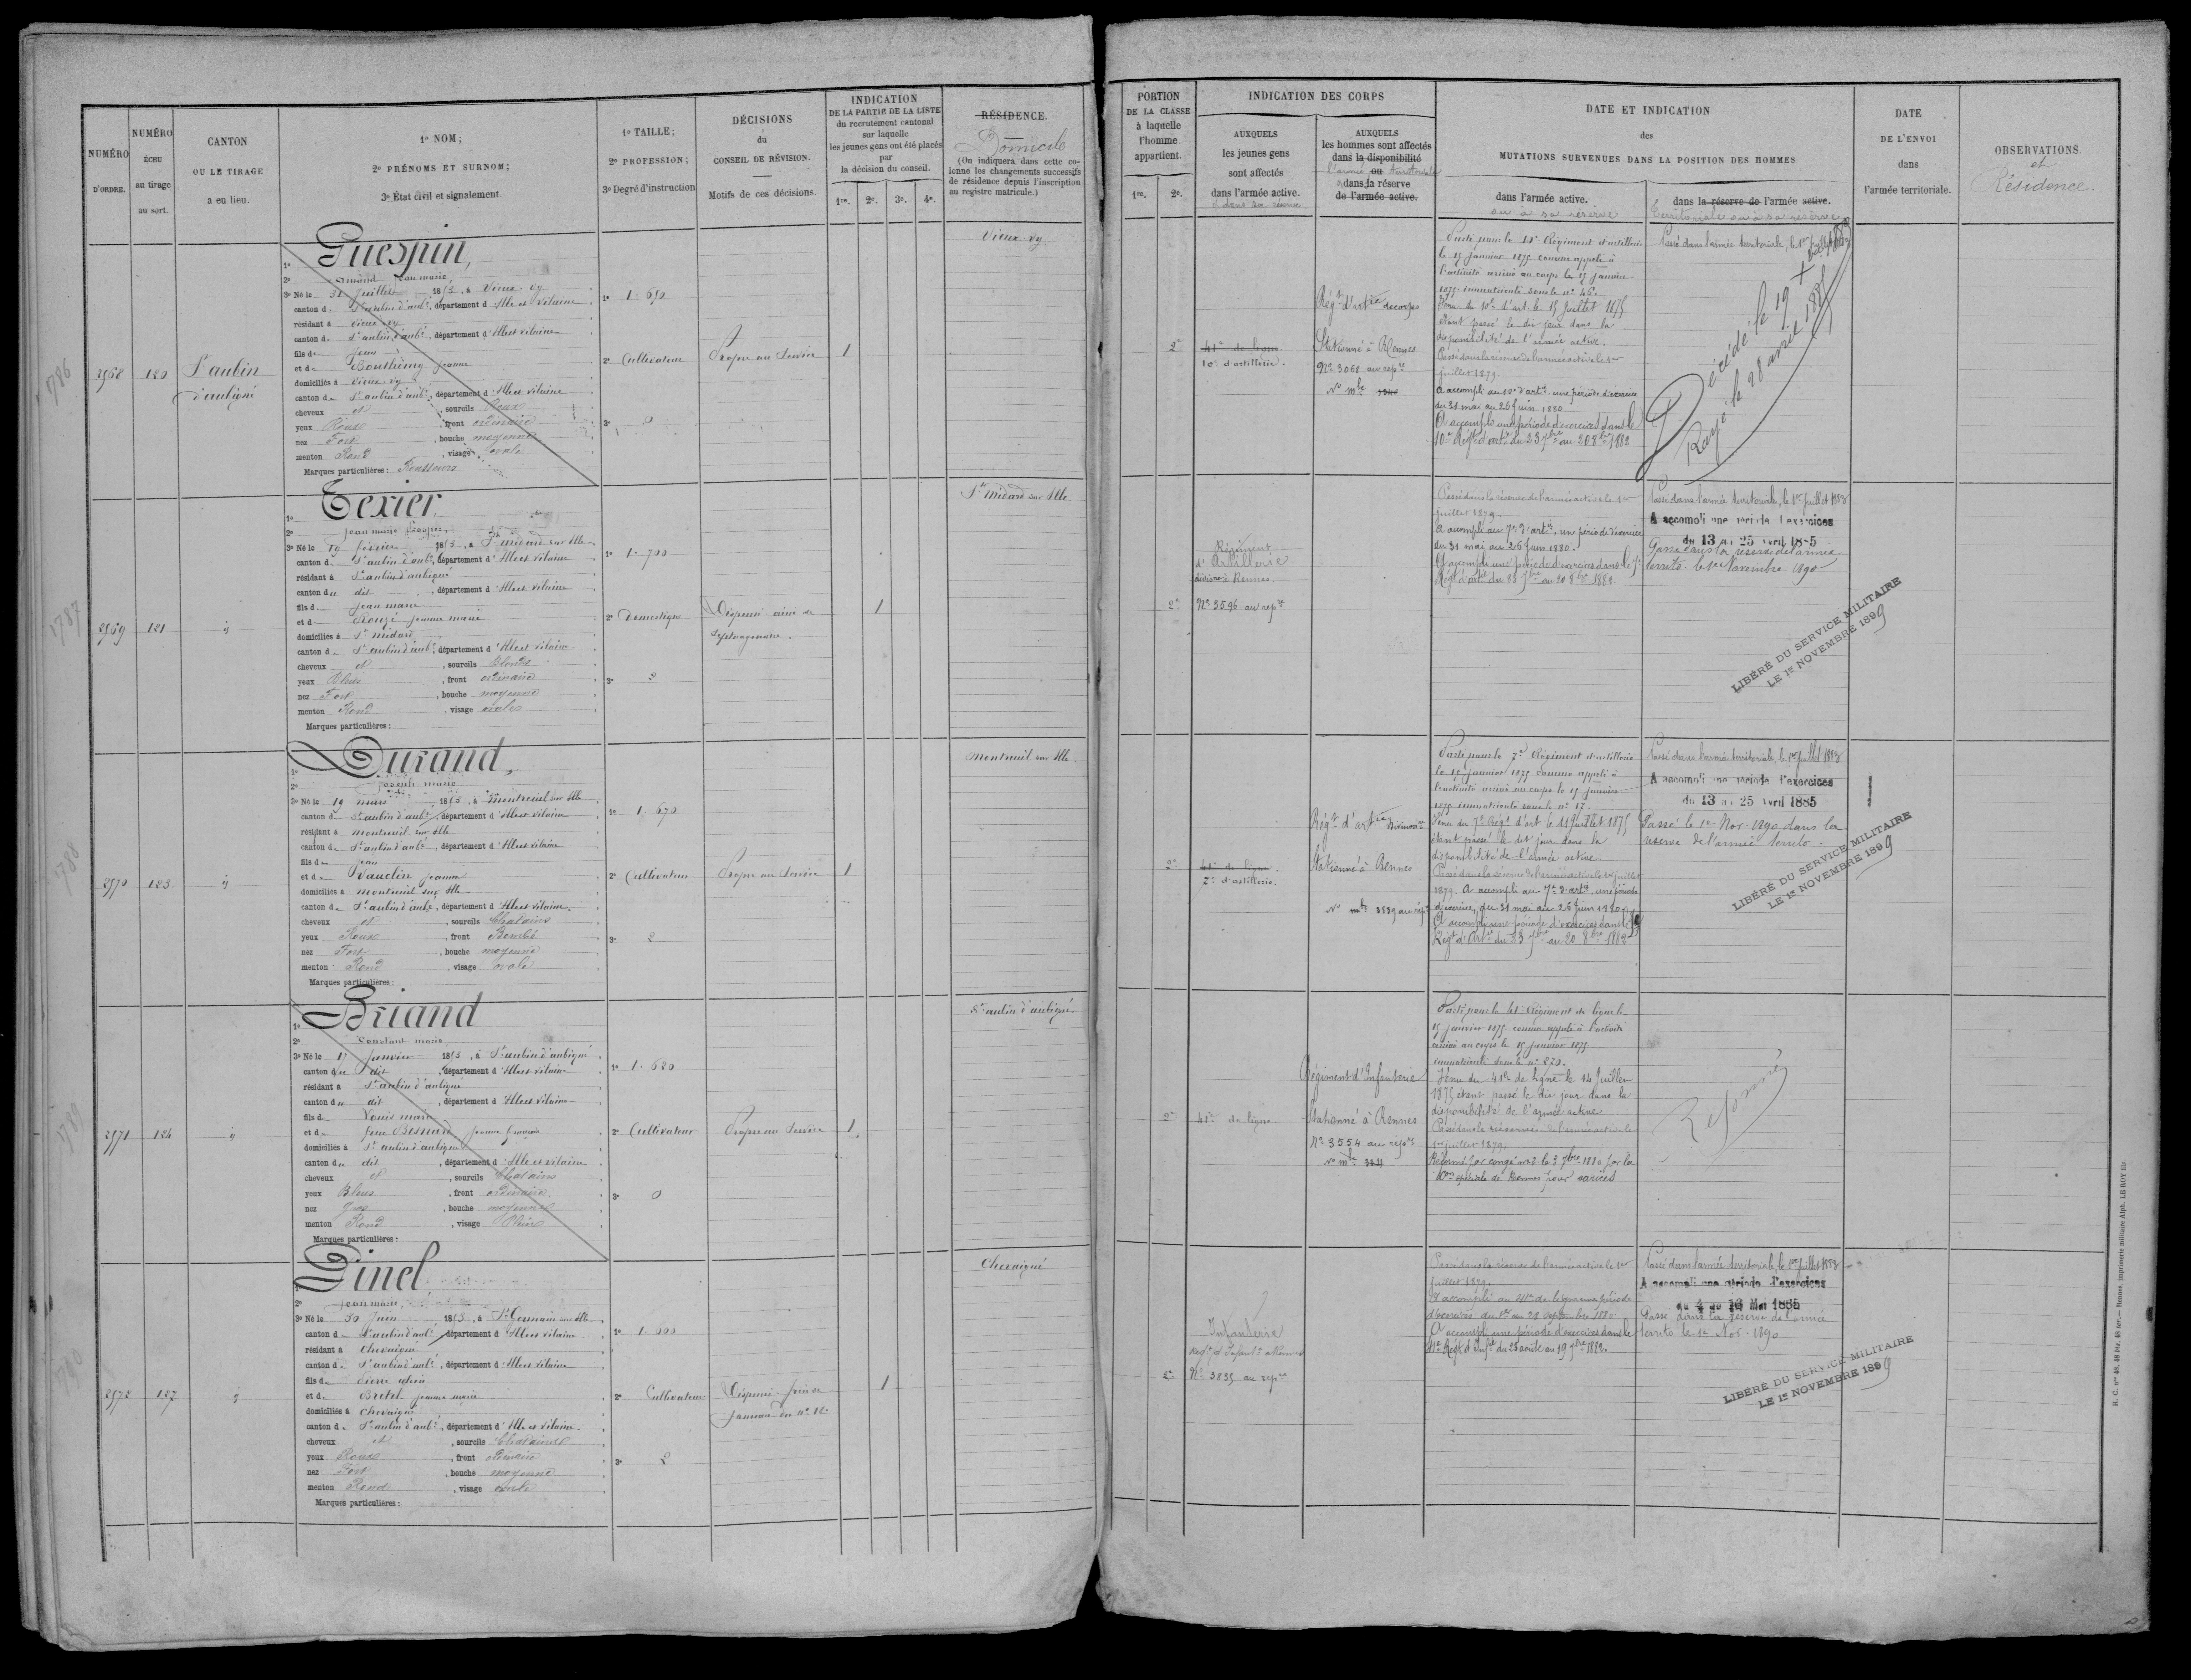 NUMÉRO
D'ORDRE.
NUMÉRO
ÉCHU
au tirage
au sort.
CANTON
OU LE TIRAGE
a eu lieu.
1º NOM;
2º PRÉNOMS ET SURNOM;
3º État civil et signalement.
1º TAILLE;
2º PROFESSION;
3º Degré d'instruction
DÉCISIONS
du
CONSEIL DE RÉVISION.
Motifs de ces décisions.
INDICATION
DE LA PARTIE DE LA LISTE
du recrutement cantonal
sur laquelle
les jeunes gens ont été placés
par
la décision du conseil.
1re. 2e. 3e. 4e.
RÉSIDENCE.
Domicile
(On indiquera dans cette co-
lonne les changements successifs
de résidence depuis l'inscription
au registre matricule.)
PORTION
DE LA CLASSE
à laquelle
l'homme
appartient.
1re. 2e.
INDICATION DES CORPS
AUXQUELS
les jeunes gens
sont affectés
dans l'armée active.
AUXQUELS
les hommes sont affectés
dans la disponibilité
l'armée ou territoriale
dans la réserve
de l'armée active.
DATE ET INDICATION
des
MUTATIONS SURVENUES DANS LA POSITION DES HOMMES
dans l'armée active.
ou à sa réserve
dans la réserve de l'armée active.
territoriale ou à sa réserve
DATE
DE L'ENVOI
dans
l'armée territoriale.
OBSERVATIONS.
et
Résidence.
1786
2568 120 St aubin
d'aubigné
1º Guespin,
2º Jean marie,
3º Né le 31 juillet 1853, à Vieux-Vy
canton de St aubin d'aubé, département d'Ille et Vilaine
résidant à Vieux-Vy
canton de St aubin d'aubé, département d'Ille et Vilaine
fils de Jean
et de Jeanne
domiciliés à Vieux-Vy
canton de St aubin d'aubé, département d'Ille et Vilaine
cheveux et , sourcils Roux
yeux Roux , front ordinaire
nez Fort , bouche moyenne
menton Rond , visage ovale
Marques particulières : Rousseurs
1º 1.690
2º Cultivateur
3º 0
Propre au Service
1
Vieux-Vy
2e
41e de ligne
10e d'artillerie.
Régt d'artie de corps
Stationné à Rennes
Nº 3068 au repre
Nº mle
le 15 janvier 1875 comme appelé à
l'activité arrivé au corps le 15 janvier
1875 immatriculé sous le nº 46.
Venu du 10e d'art. le 15 Juillet 1875
étant passé le dit jour dans la
disponibilité de l'armée active.
Passé dans la réserve de l'armée active le 1er
juillet 1879.
A accompli au 10e d'artie une période d'exercices
du 31 mai au 26 juin 1880.
A accompli une période d'exercices dans le
10e Régt d'artie du 23 7bre au 20 8bre 1882
Passé dans l'armée territoriale, le 1er juillet
Décédé le 19
Rayé le 28 avril 1885
1787
2569 121 id
1º Texier,
2º Jean marie Prosper,
3º Né le 19 février 1853, à St médard sur Ille
canton de St aubin d'aubé, département d'Ille et Vilaine
résidant à St aubin d'aubigné
canton du dit , département d'Ille et Vilaine
fils de Jean marie
et de Rouzé Jeanne marie
domiciliés à St médard
canton de St aubin d'aubé, département d'Ille et Vilaine
cheveux et , sourcils Blonds
yeux Bleus , front ordinaire
nez Fort , bouche moyenne
menton Rond , visage ovale
Marques particulières :
1º 1.700
2º Domestique
3º 2
Dispensé aîné de
septuagénaire.
1
St médard sur Ille
2e
Régiment
d'Artillerie
division. Rennes.
Nº 3596 au repre
Passé dans la réserve de l'armée active le 1er
juillet 1879.
A accompli au 7e d'artie, une période d'exercices
du 31 mai au 26 juin 1880.
A accompli une période d'exercices dans le 7e
Régt d'artie du 23 7bre au 20 8bre 1882
Passé dans l'armée territoriale, le 1er juillet 1883
A accompli une période d'exercices
du 13 au 25 Avril 1885
Passé dans la réserve de l'armée
territo. le 1er Novembre 1890
LIBÉRÉ DU SERVICE MILITAIRE
LE 1er NOVEMBRE 1899
1788
2570 123 id
1º Durand,
2º Joseph marie
3º Né le 19 mars 1853, à Montreuil sur Ille
canton de St aubin d'aubé, département d'Ille et Vilaine
résidant à Montreuil sur Ille
canton de St aubin d'aubé, département d'Ille et Vilaine
fils de Jean
et de Vauclin Jeanne
domiciliés à Montreuil sur Ille
canton de St aubin d'aubé, département d'Ille et Vilaine
cheveux et , sourcils Chatains
yeux Roux , front Bombé
nez Fort , bouche moyenne
menton Rond , visage ovale
Marques particulières :
1º 1.670
2º Cultivateur
3º 2
Propre au Service
1
Montreuil sur Ille
2e
41e de ligne.
7e d'artillerie.
Régt d'artie
Stationné à Rennes
Nº mle 3339 au repre
Parti pour le 7e Régiment d'artillerie
le 15 janvier 1875 comme appelé à
l'activité arrivé au corps le 15 janvier
1875 immatriculé sous le nº 17.
étant passé le dit jour dans la
disponibilité de l'armée active.
Passé dans la réserve de l'armée active le 1er juillet
1879. A accompli au 7e d'artie une période
d'exercices, du 31 mai au 26 juin 1880.
A accompli une période d'exercices dans le 7e
Régt d'Artie du 23 7bre au 20 8bre 1882
Passé dans l'armée territoriale, le 1er juillet 1883
A accompli une période d'exercices
du 13 au 25 Avril 1885
Passé le 1er Nov. 1890 dans la
réserve de l'armée territo.
LIBÉRÉ DU SERVICE MILITAIRE
LE 1er NOVEMBRE 1899
1789
2571 124 id
1º Briand
2º Constant marie
3º Né le 17 janvier 1853, à St aubin d'aubigné
canton du dit , département d'Ille et Vilaine
résidant à St aubin d'aubigné
canton du dit , département d'Ille et Vilaine
fils de Louis marie
et de feue Jeanne françoise
domiciliés à St aubin d'aubigné
canton du dit , département d'Ille et Vilaine
cheveux et , sourcils Chatains
yeux Bleus , front ordinaire
nez Gros , bouche moyenne
menton Rond , visage Plein
Marques particulières :
1º 1.620
2º Cultivateur
3º 0
Propre au Service
1
St aubin d'aubigné
2e
41e de ligne
Régiment d'Infanterie
Stationné à Rennes
Nº 3554 au repre
Nº mle
Parti pour le 41e Régiment de ligne le
15 janvier 1875 comme appelé à l'activité
arrivé au corps le 15 janvier 1875
immatriculé sous le nº 279.
Venu du 41e de ligne le 14 Juillet
1875 étant passé le dit jour dans la
disponibilité de l'armée active
Passé dans la réserve de l'armée active le
1er juillet 1879.
Réformé par congé nº 2 le 3 7bre 1880 par la
Con spéciale de Rennes pour varices
Réformé
1790
2572 127 id
1º Pinel
2º Jean marie,
3º Né le 30 Juin 1853, à St Germain sur Ille
canton de St aubin d'aubé, département d'Ille et Vilaine
résidant à Chevaigné
canton de St aubin d'aubé, département d'Ille et Vilaine
fils de Pierre
et de Bretel Jeanne marie
domiciliés à Chevaigné
canton de St aubin d'aubé, département d'Ille et Vilaine
cheveux et , sourcils Chatains
yeux Roux , front ordinaire
nez Fort , bouche moyenne
menton Rond , visage ovale
Marques particulières :
1º 1.600
2º Cultivateur
3º 2
1
Chevaigné
2e
Infanterie
Nº 3835 au repre
Passé dans la réserve de l'armée active le 1er
juillet 1879.
A accompli au 41e de ligne une période
A accompli une période d'exercices dans le
41e Régt d'Infie du 23 août au 19 7bre 1882.
Passé dans l'armée territoriale, le 1er juillet 1883
A accompli une période d'exercices
du 4 au 16 Mai 1885
Passé dans la réserve de l'armée
territo le 1er Nov. 1890
LIBÉRÉ DU SERVICE MILITAIRE
LE 1er NOVEMBRE 1899
Rennes, imprimerie militaire Alph. LE ROY fils.